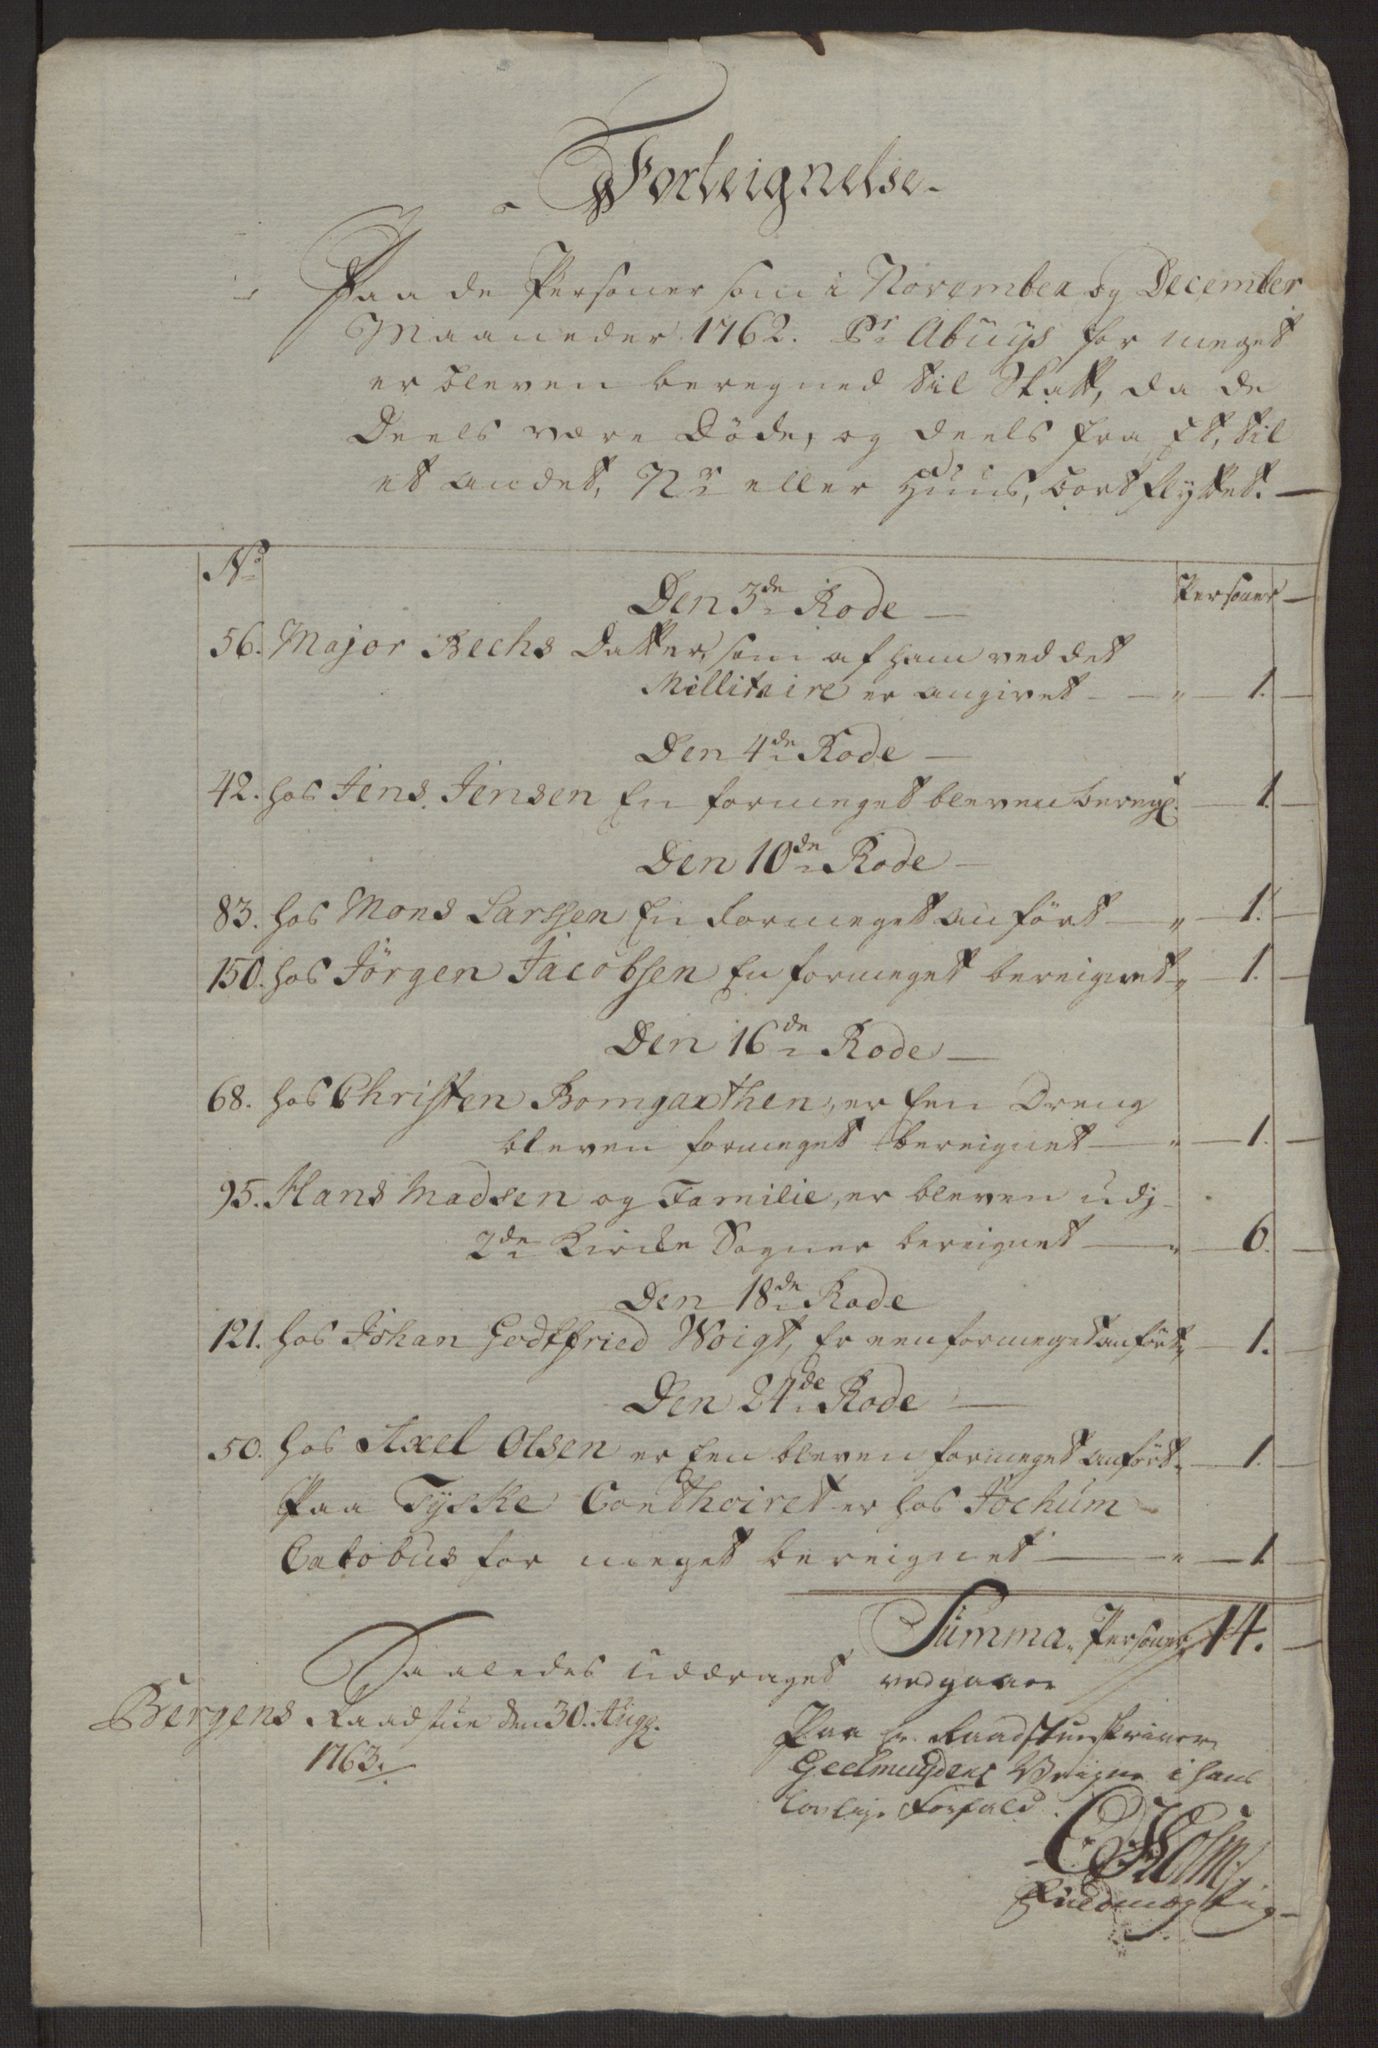 Forteignelse
Paa de Personer som i November og December
Maaneder 1762. Pr Abuys for meget
er bleven beregned til Skatt, da de
Deels være Døde, og deels fra Et, til
et andet, Nr eller Huus, bort flyttet.
No
Personer
Den 3de Rode
56. Major Bechs Datter, som af ham ved det
Millitaire er angivet " 1.
Den 4de Rode
42. hos Jens Jensen En formeget bleven beregt. 1.
Den 10de Rode
83. hos Mons Larssen En formeget anført " 1.
150. hos Jørgen Jacobsen En formeget bereignet " 1.
Den 16de Rode
68. hos Christen Bomgarthen, er Een Dreng
bleven formeget bereignet " 1.
95. Hans Madsen og Familie, er bleven udj
2de Kircke Sogner bereignet " 6.
Den 18de Rode
121. hos Johan Godtfried Woigt, Er een formeget anført " 1.
Den 24de Rode
50. hos Axel Olsen er Een bleven formeget anført " 1.
Paa Tyske Conthoiret er hos Jochum
Catobus for meget bereignet " 1
Summa Personer 14.
Saaledes uddraget vedgaaer
Bergens Raadstue den 30. Aug.
1763.
Paa Hr. Raadstueskriver
Geelmuydens Veigne i hans
lovlige Forfald.
C Holm
Fuldmægtig